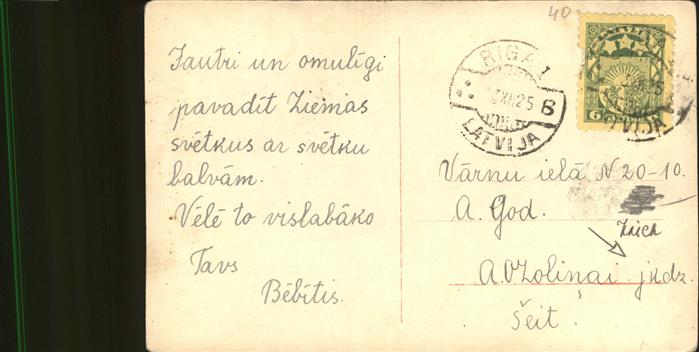 Jautri un omulīgi
pavadīt Ziemas
svētkus ar svētku
balvām.
Vēlē to vislabāko
Tavs
Bēbītis.
40
LATVIJA
6
RIGA 1
XII 25
B
LATVIJA
Vārnu ielā N 20-10.
A. God.
A. Ozoliņai jkdz.
Šeit.